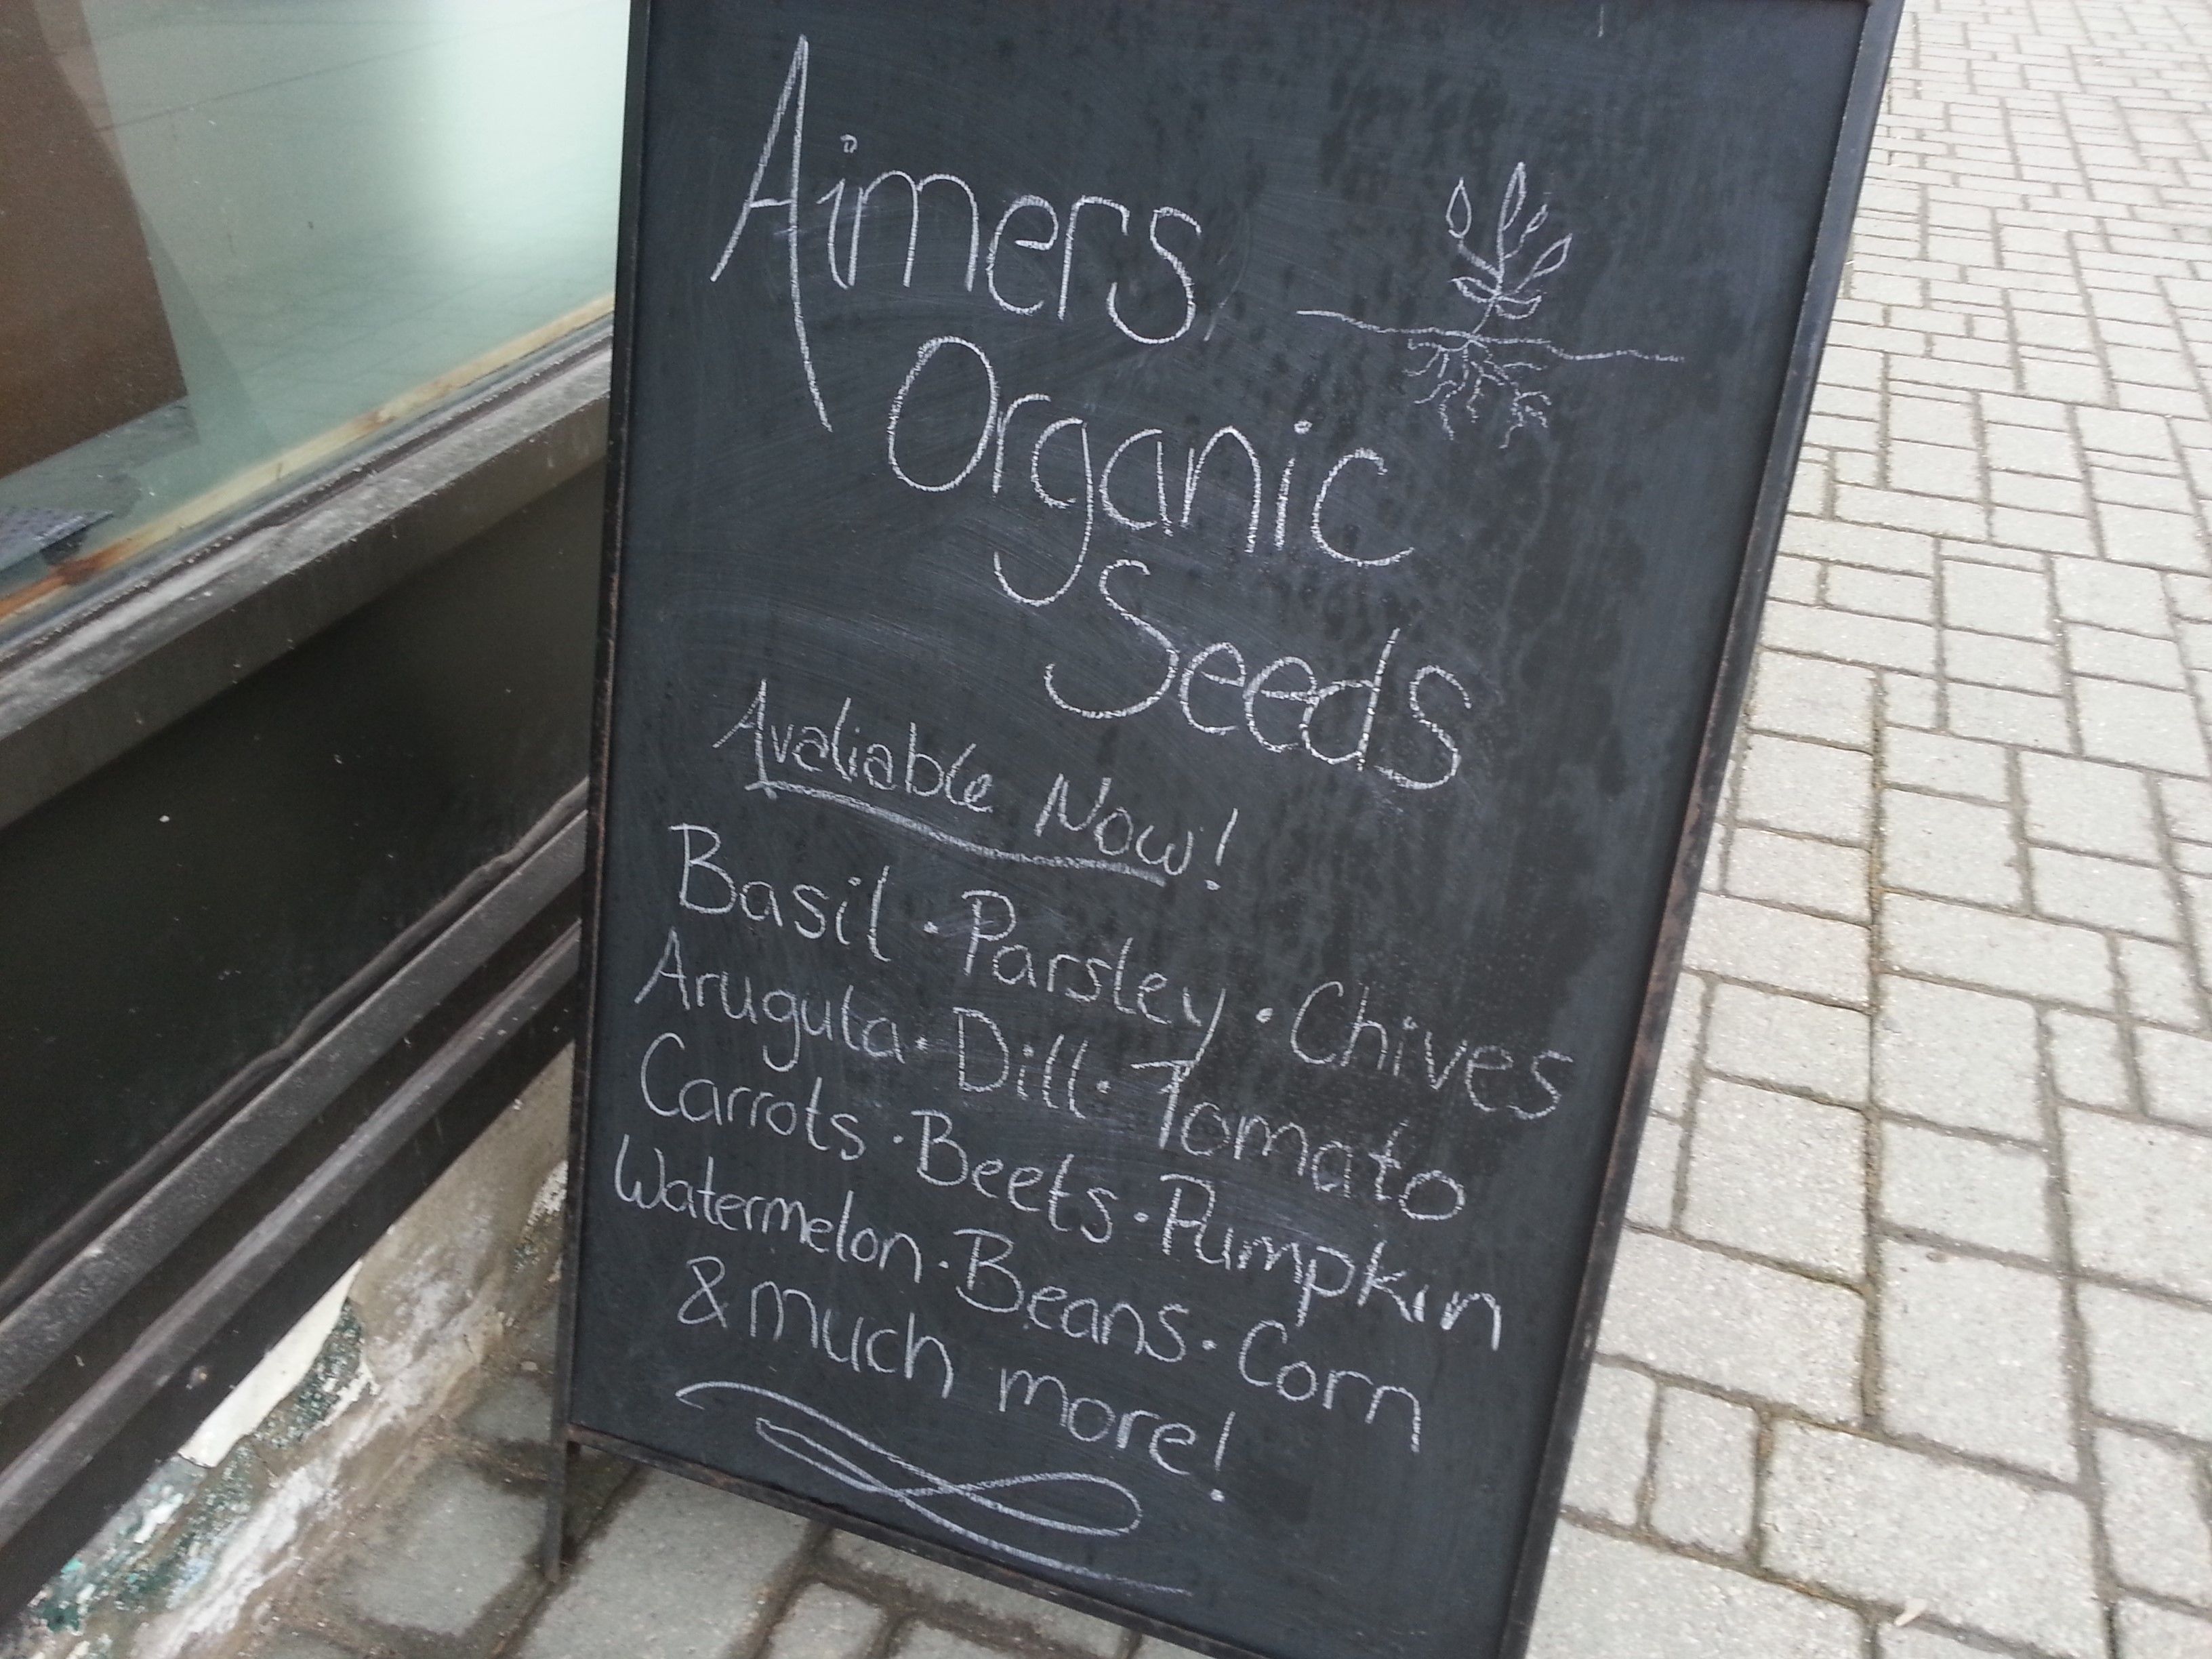 Aimers
Organic
Seeds
Avaliable Now!
Basil · Parsley · Chives
Arugula · Dill · Tomato
Carrots · Beets · Pumpkin
Watermelon · Beans · Corn
& much more!